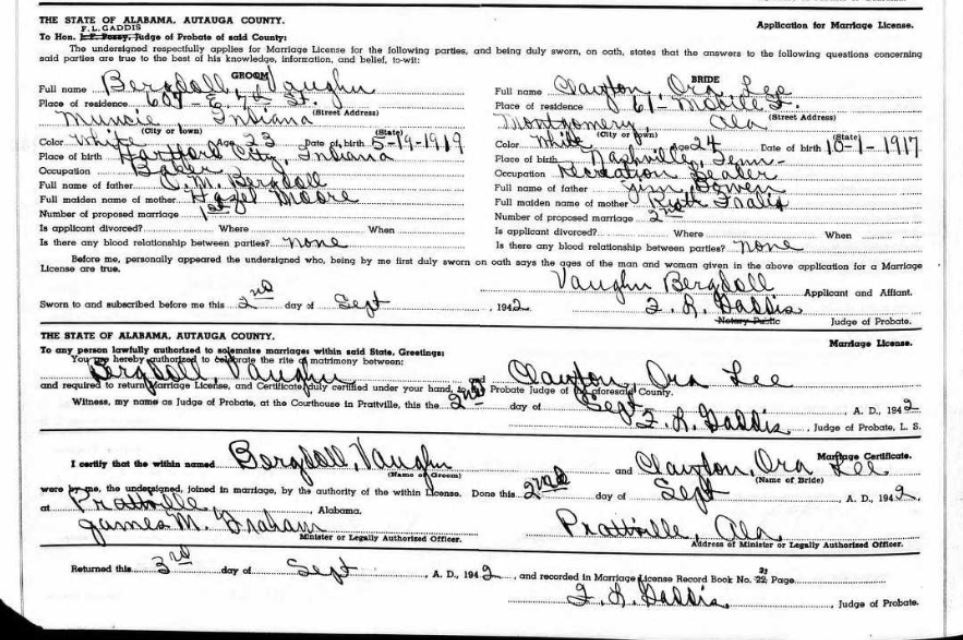 THE STATE OF ALABAMA, AUTAUGA COUNTY. Application for Marriage License.
F. L. GADDIS
To Hon. Judge of Probate of said County:
The undersigned respectfully applies for Marriage License for the following parties, and being duly sworn, on oath, states that the answers to the following questions concerning
said parties are true to the best of his knowledge, information, and belief, to-wit:
GROOM
Full name Bergdoll, Vaughn
Place of residence 607 - E. 7th St.
(Street Address)
Muncie Indiana
(City or town) (State)
Color White Age 23 Date of birth 5-19-1919
Place of birth Hartford City, Indiana
Occupation Baker
Full name of father C. M. Bergdoll
Full maiden name of mother Hazel Moore
Number of proposed marriage 1st
Is applicant divorced? Where When
Is there any blood relationship between parties? none
BRIDE
Full name Clayton, Ora Lee
Place of residence 61 - Mobile St.
(Street Address)
Montgomery Ala
(City or town) (State)
Color White Age 24 Date of birth 10-1-1917
Place of birth Nashville, Tenn-
Occupation Recreation Leader
Full name of father Jim Bowen
Full maiden name of mother Ruth
Number of proposed marriage 2nd
Is applicant divorced? Where When
Is there any blood relationship between parties? none
Before me, personally appeared the undersigned who, being by me first duly sworn on oath says the ages of the man and woman given in the above application for a Marriage
License are true.
Vaughn Bergdoll Applicant and Affiant.
Sworn to and subscribed before me this 2nd day of Sept, 1942. F. L. Gaddis
Notary Public Judge of Probate.
THE STATE OF ALABAMA, AUTAUGA COUNTY. Marriage License.
To any person lawfully authorized to solemnize marriages within said State, Greetings:
You are hereby authorized to celebrate the rite of matrimony between:
Bergdoll, Vaughn and Clayton, Ora Lee
and required to return Marriage License, and Certificate, duly certified under your hand, to Probate Judge of aforesaid County.
Witness, my name as Judge of Probate, at the Courthouse in Prattville, this the 2nd day of Sept, A. D., 1942
F. L. Gaddis, Judge of Probate, L. S.
Marriage Certificate.
I certify that the within named Bergdoll, Vaughn and Clayton, Ora Lee
(Name of Groom) (Name of Bride)
were by me, the undersigned, joined in marriage, by the authority of the within License. Done this 2nd day of Sept, A. D., 1942.
at Prattville, Alabama.
James M. Graham Prattville, Ala
Minister or Legally Authorized Officer. Address of Minister or Legally Authorized Officer.
Returned this 3rd day of Sept, A. D., 1942, and recorded in Marriage License Record Book No. 22 Page
F. L. Gaddis, Judge of Probate.